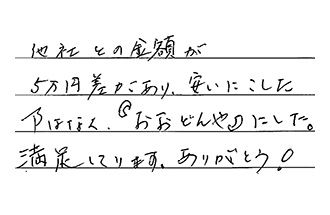 他社との金額が
5万円差があり、安いにこした
事はなく、「おおどんや」にした。
満足してります。ありがとう!